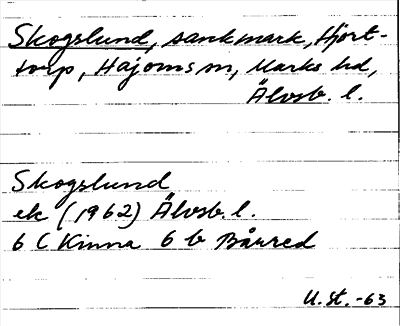 Skogslund, sankmark, Hjort-
torp, Hajoms sn, Marks hd,
Älvsb. l.
Skogslund
ek (1962) Älvsb. l.
6 C Kinna 6 b Bårred
U. St. -63